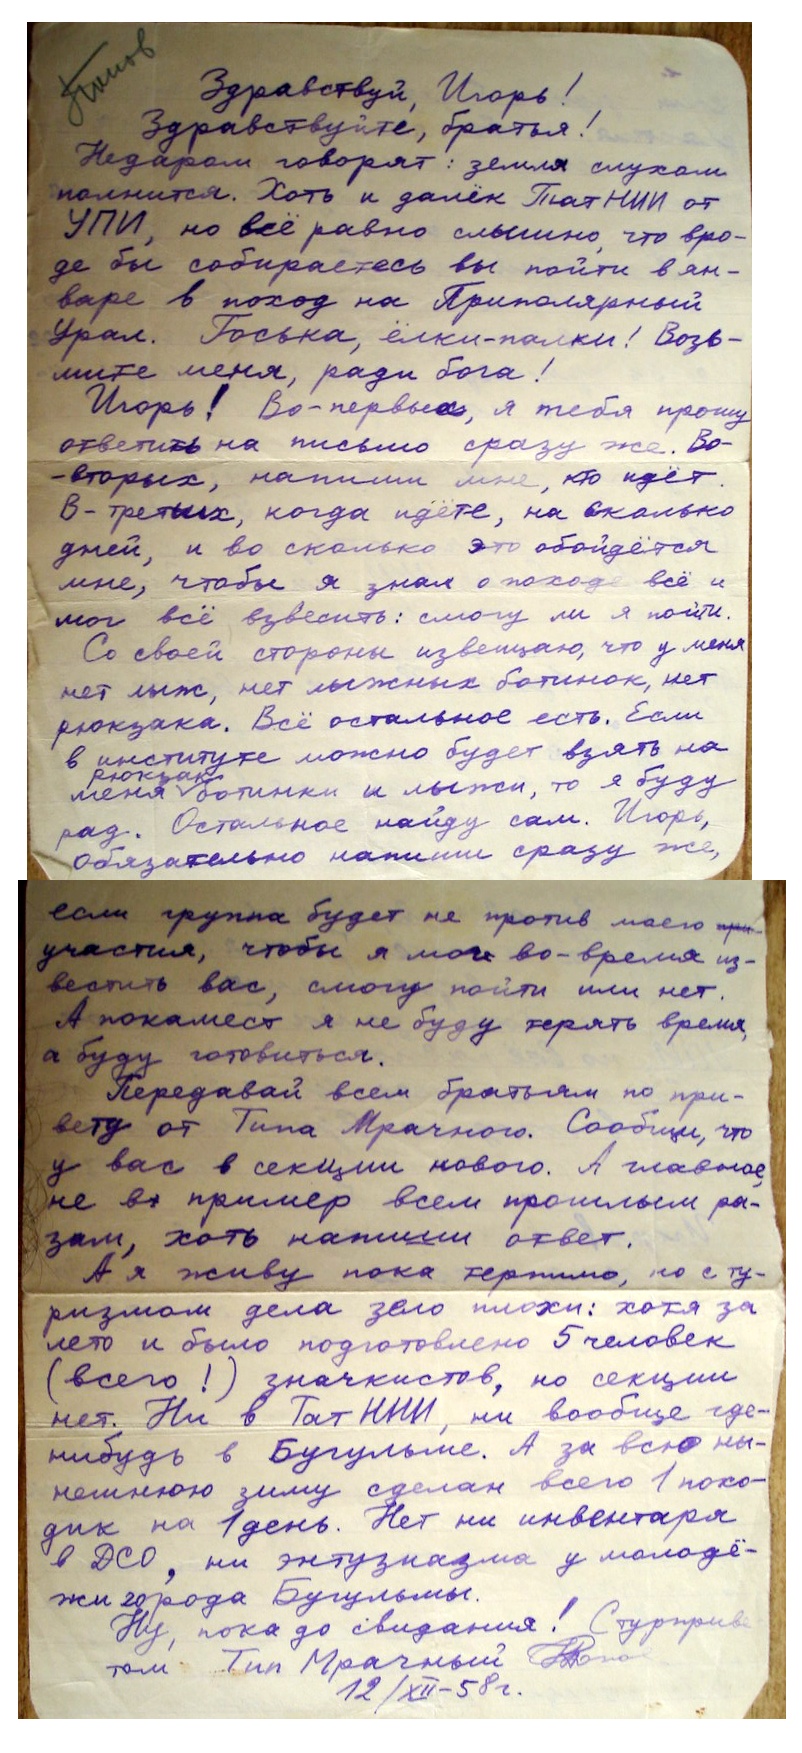 Попов
Здравствуй, Игорь!
Здравствуйте, братья!
Недаром говорят: земля слухом
полнится. Хоть и далёк ТатНИИ от
УПИ, но всё равно слышно, что вро-
де бы собираетесь вы пойти в ян-
варе в поход на Приполярный
Урал. Госька, ёлки-палки! Возь-
мите меня, ради бога!
Игорь! Во-первых, я тебя прошу
ответить на письмо сразу же. Во-
-вторых, напиши мне, кто идёт.
В-третьих, когда идёте, на сколько
дней, и во сколько это обойдётся
мне, чтобы я знал о походе всё и
мог всё взвесить: смогу ли я пойти.
Со своей стороны извещаю, что у меня
нет лыж, нет лыжных ботинок, нет
рюкзака. Всё остальное есть. Если
в институте можно будет взять на
рюкзак
меня ботинки и лыжи, то я буду
рад. Остальное найду сам. Игорь,
обязательно напиши сразу же,
если группа будет не против моего при-
участия, чтобы я мог во-время из-
вестить вас, смогу пойти или нет.
А покамест я не буду терять время,
а буду готовиться.
Передавай всем братьям по при-
вету от Типа Мрачного. Сообщи, что
у вас в секции нового. А главное,
не в пример всем прошлым ра-
зам, хоть напиши ответ.
А я живу пока терпимо, но с ту-
ризмом дела зело плохи: хотя за
лето и было подготовлено 5 человек
(всего!) значкистов, но секции
нет. Ни в ТатНИИ, ни вообще где-
нибудь в Бугульме. А за всю ны-
нешнюю зиму сделан всего 1 похо-
дик на 1 день. Нет ни инвентаря
в ДСО, ни энтузиазма у молодё-
жи города Бугульмы.
Ну, пока до свидания! С турприве
том Тип Мрачный
12/XII-58г.